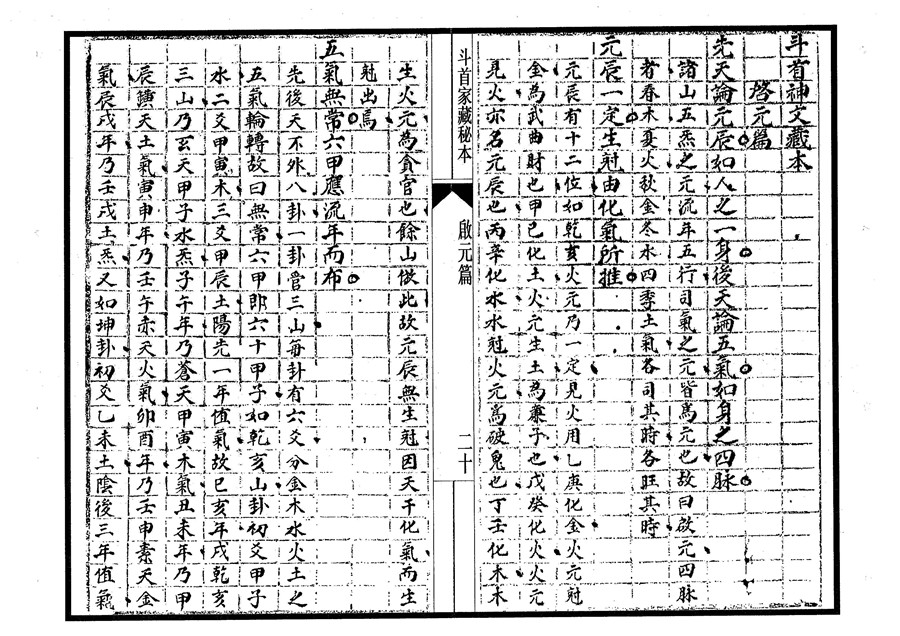 斗首神文藏本
啓元篇
先天論元辰如人之一身後天論五氣如身之四脉
諸山五炁之元流年五行司氣之元皆為元也故曰啟元四脉
者春木夏火秋金冬水四季土氣各司其時各旺其時
元辰一定生尅由化氣所推
元辰有十二位如乾亥火元乃一定見火用乙庚化金火元尅
金為武曲財也甲己化土火元生土為廉子也戊癸化火火元
見火亦名元辰也丙辛化水水尅火元為破鬼也丁壬化木木
斗首家藏秘本
啟元篇
二十
生火元為貪官也餘山倣此故元辰無生尅因天干化氣而生
尅出焉
五氣無常六甲應流年而布
先後天不外八卦一卦管三山每卦有六爻分金木水火土之
五氣輪轉故曰無常六甲即六十甲子如乾亥山卦初爻甲子
水二爻甲寅木三爻甲辰土陽先一年值氣故巳亥年戌乾亥
三山乃玄天甲子水炁子午年乃蒼天甲寅木氣丑未年乃甲
辰黃天土氣寅申年乃壬午赤天火氣卯酉年乃壬申素天金
氣辰戌年乃壬戌土炁又如坤卦初爻乙未土陰後三年值氣